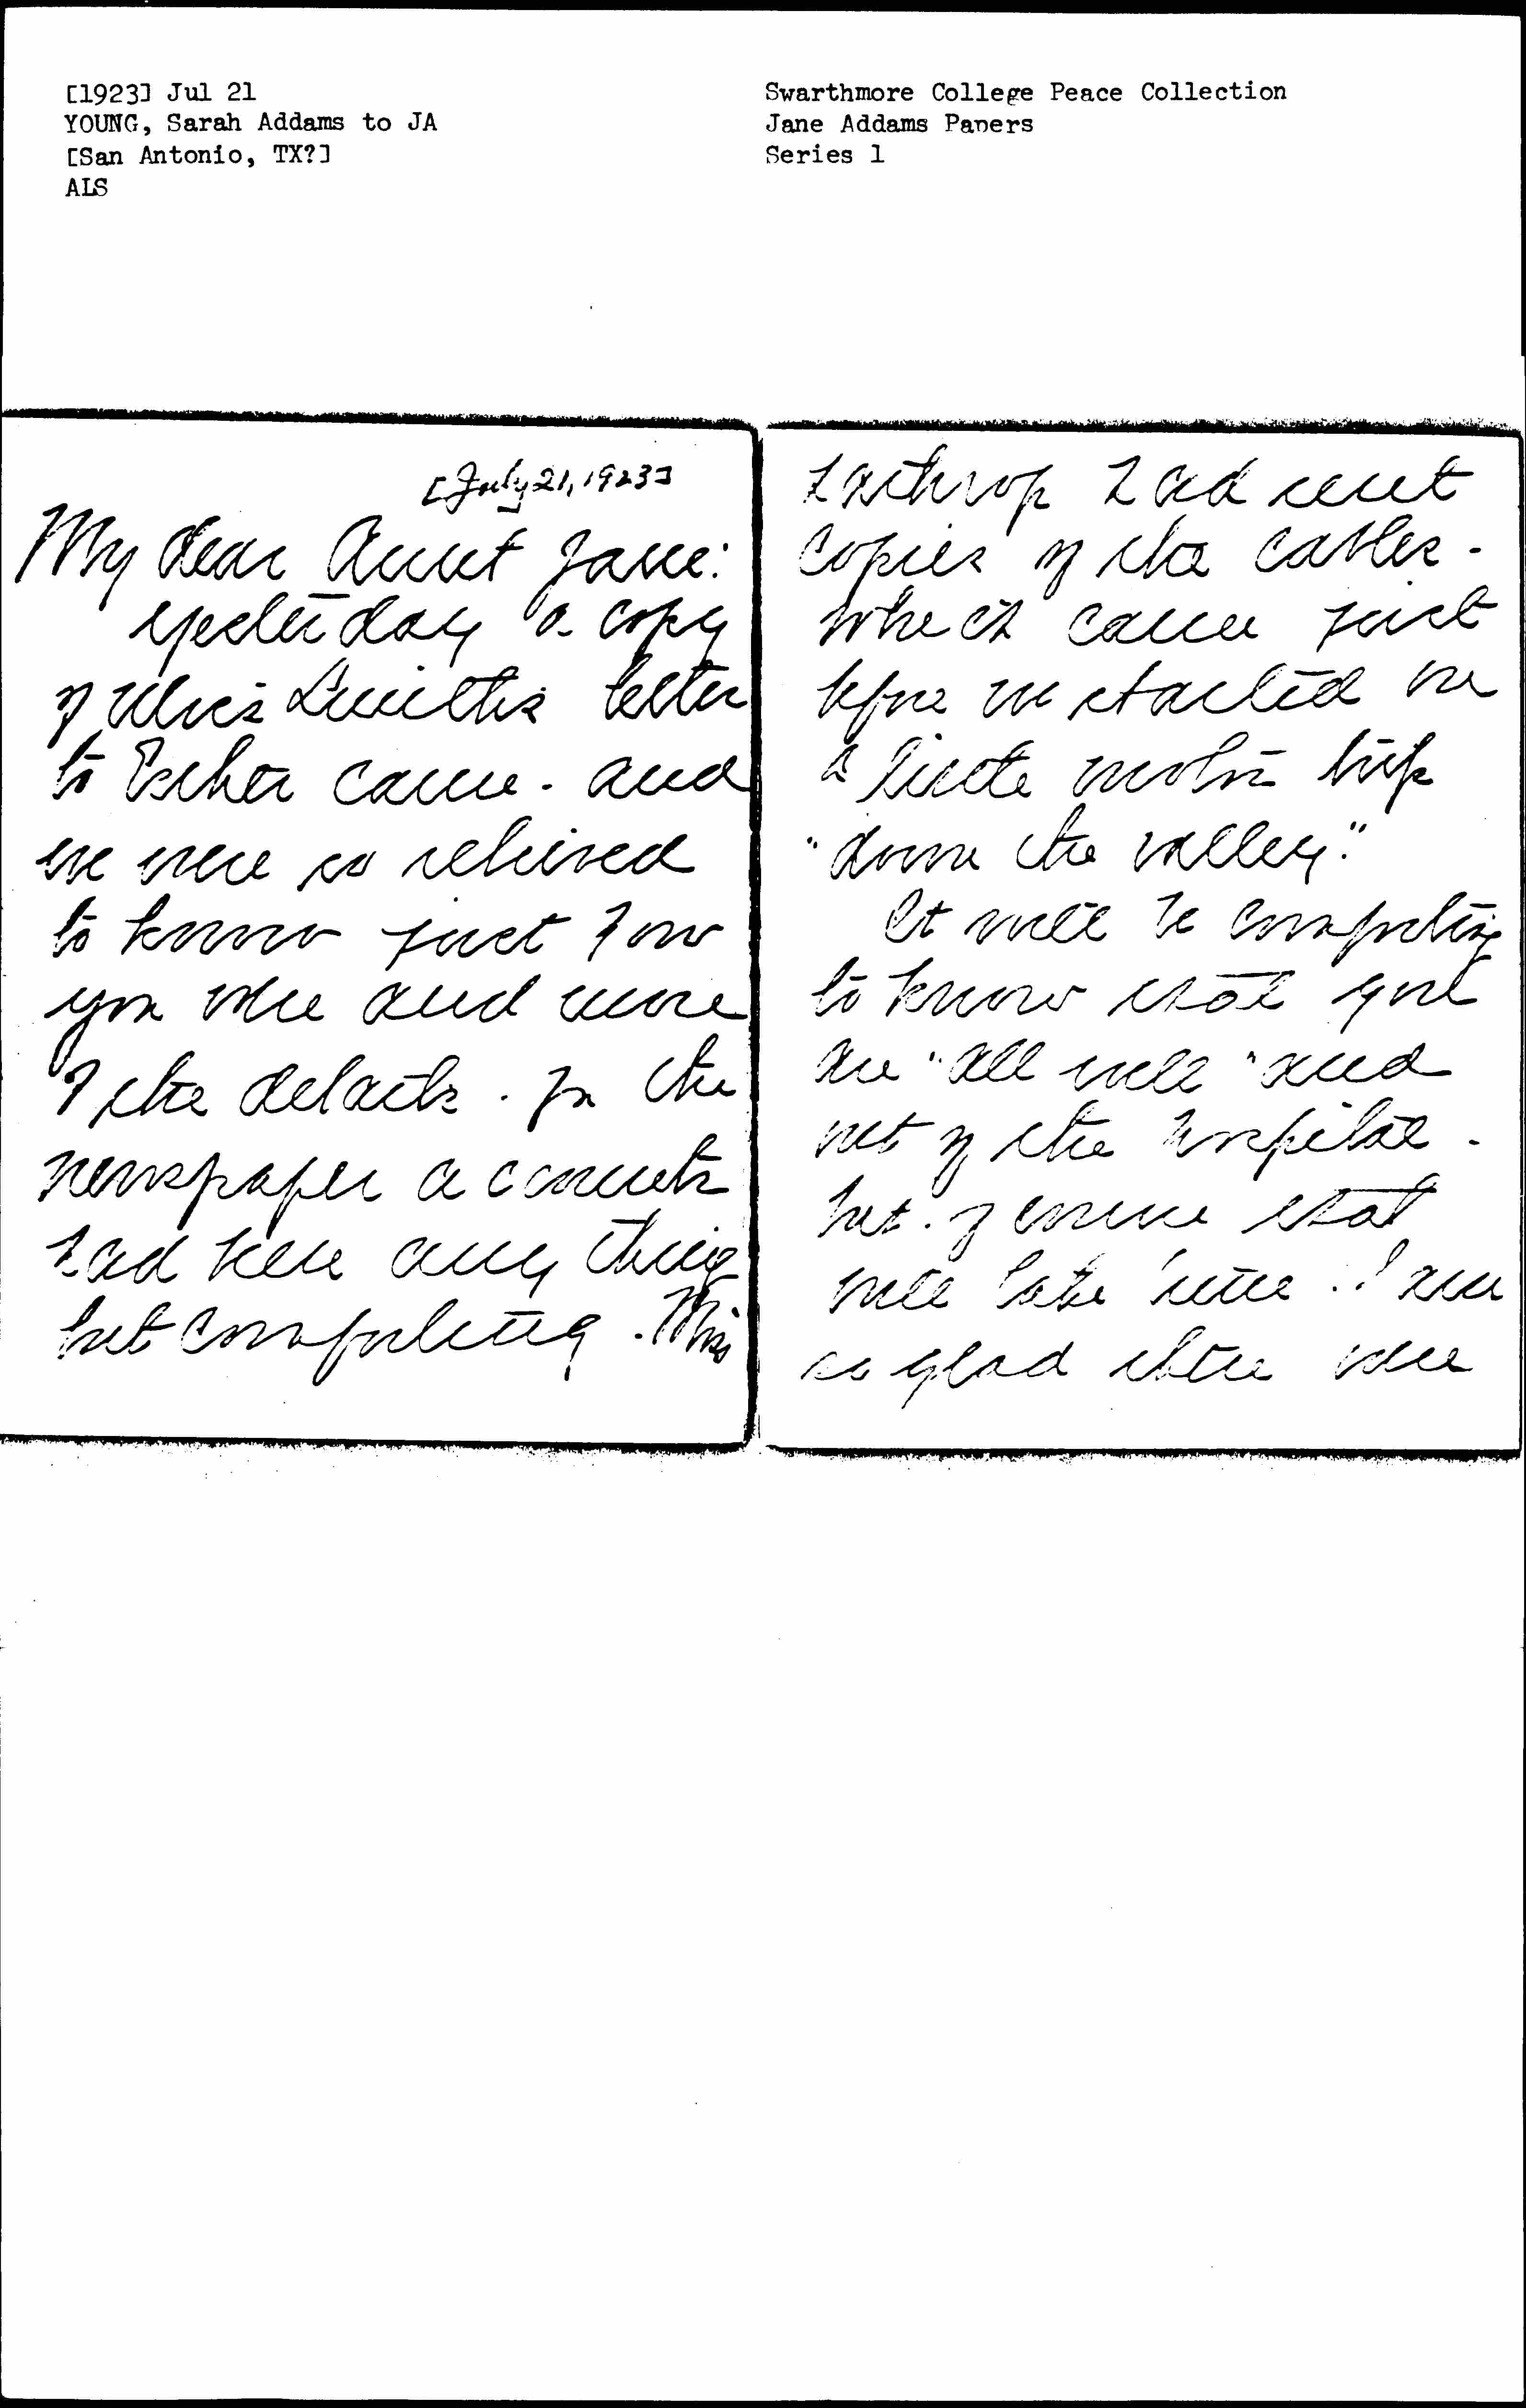 [1923] Jul 21
YOUNG, Sarah Addams to JA
[San Antonio, TX?]
ALS
Swarthmore College Peace Collection
Jane Addams Papers
Series 1
[July 21, 1923]
My dear Aunt Jane:
yesterday a copy
of Miss Smith's letter
to Esther came - and
we were so relieved
to know just how
you were and more
of the details. for the
newspaper accounts
had been any thing
but comforting. Miss
Lathrop had sent
copies of the cables -
which came just
before we started on
a little motor trip
"down the valley."
It will be comforting
to know that you
are "all well" and
out of the hospital -
but of course that
will take time. I am
so glad there were